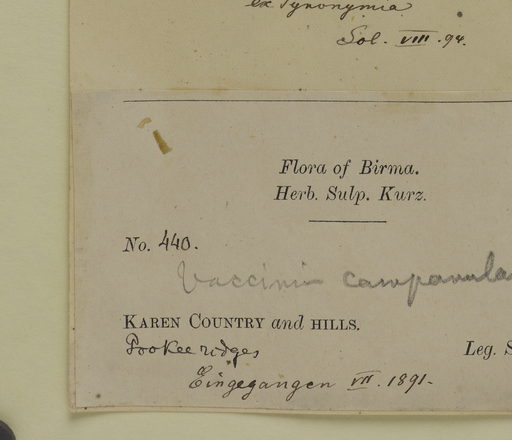 ex Synonymia
Sol. VIII. 94.
Flora of Birma.
Herb. Sulp. Kurz.
No. 440.
Vaccinium campanula
KAREN COUNTRY and HILLS.
Pookee ridges Leg. S
Eingegangen VII. 1891.